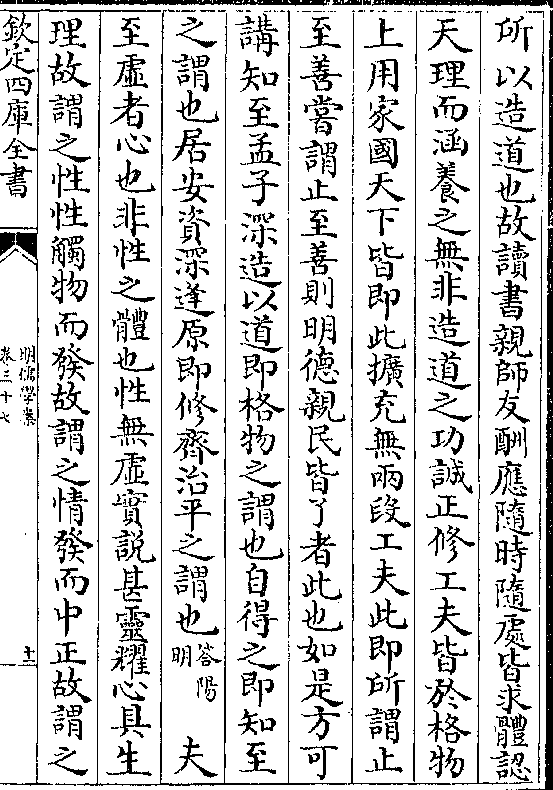 所以造道也故讀書親師友酬應隨時隨處皆求體認
天理而涵養之無非造道之功誠正修工夫皆於格物
上用家國天下皆即此擴充無兩段工夫此即所謂止
至善嘗謂止至善則明德親民皆了者此也如是方可
講知至孟子深造以道即格物之謂也自得之即知至
之謂也居安資深逢原即修齊治平之謂也答陽明 夫
至虛者心也非性之體也性無虛實說甚靈耀心具生
理故謂之性性觸物而發故謂之情發而中正故謂之
欽定四庫全書
明儒學案
卷三十七
十一